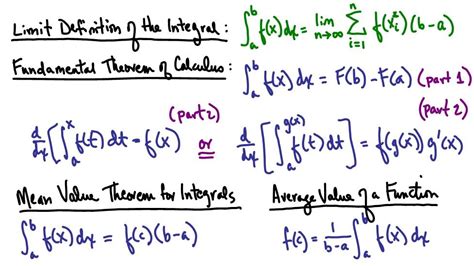 Limit Definition of the Integral: ∫_a^b f(x)dx = lim_{n→∞} Σ_{i=1}^n f(x_i^*)(b-a)
Fundamental Theorem of Calculus: ∫_a^b f(x)dx = F(b)-F(a) (part 1)
(part 2) (part 2)
d/dx[∫_a^x f(t)dt = f(x) or d/dx[∫_a^{g(x)} f(t)dt] = f(g(x))g'(x)
Mean Value Theorem for Integrals Average Value of a Function
∫_a^b f(x)dx = f(c)(b-a) f(c) = 1/(b-a) ∫_a^b f(x)dx